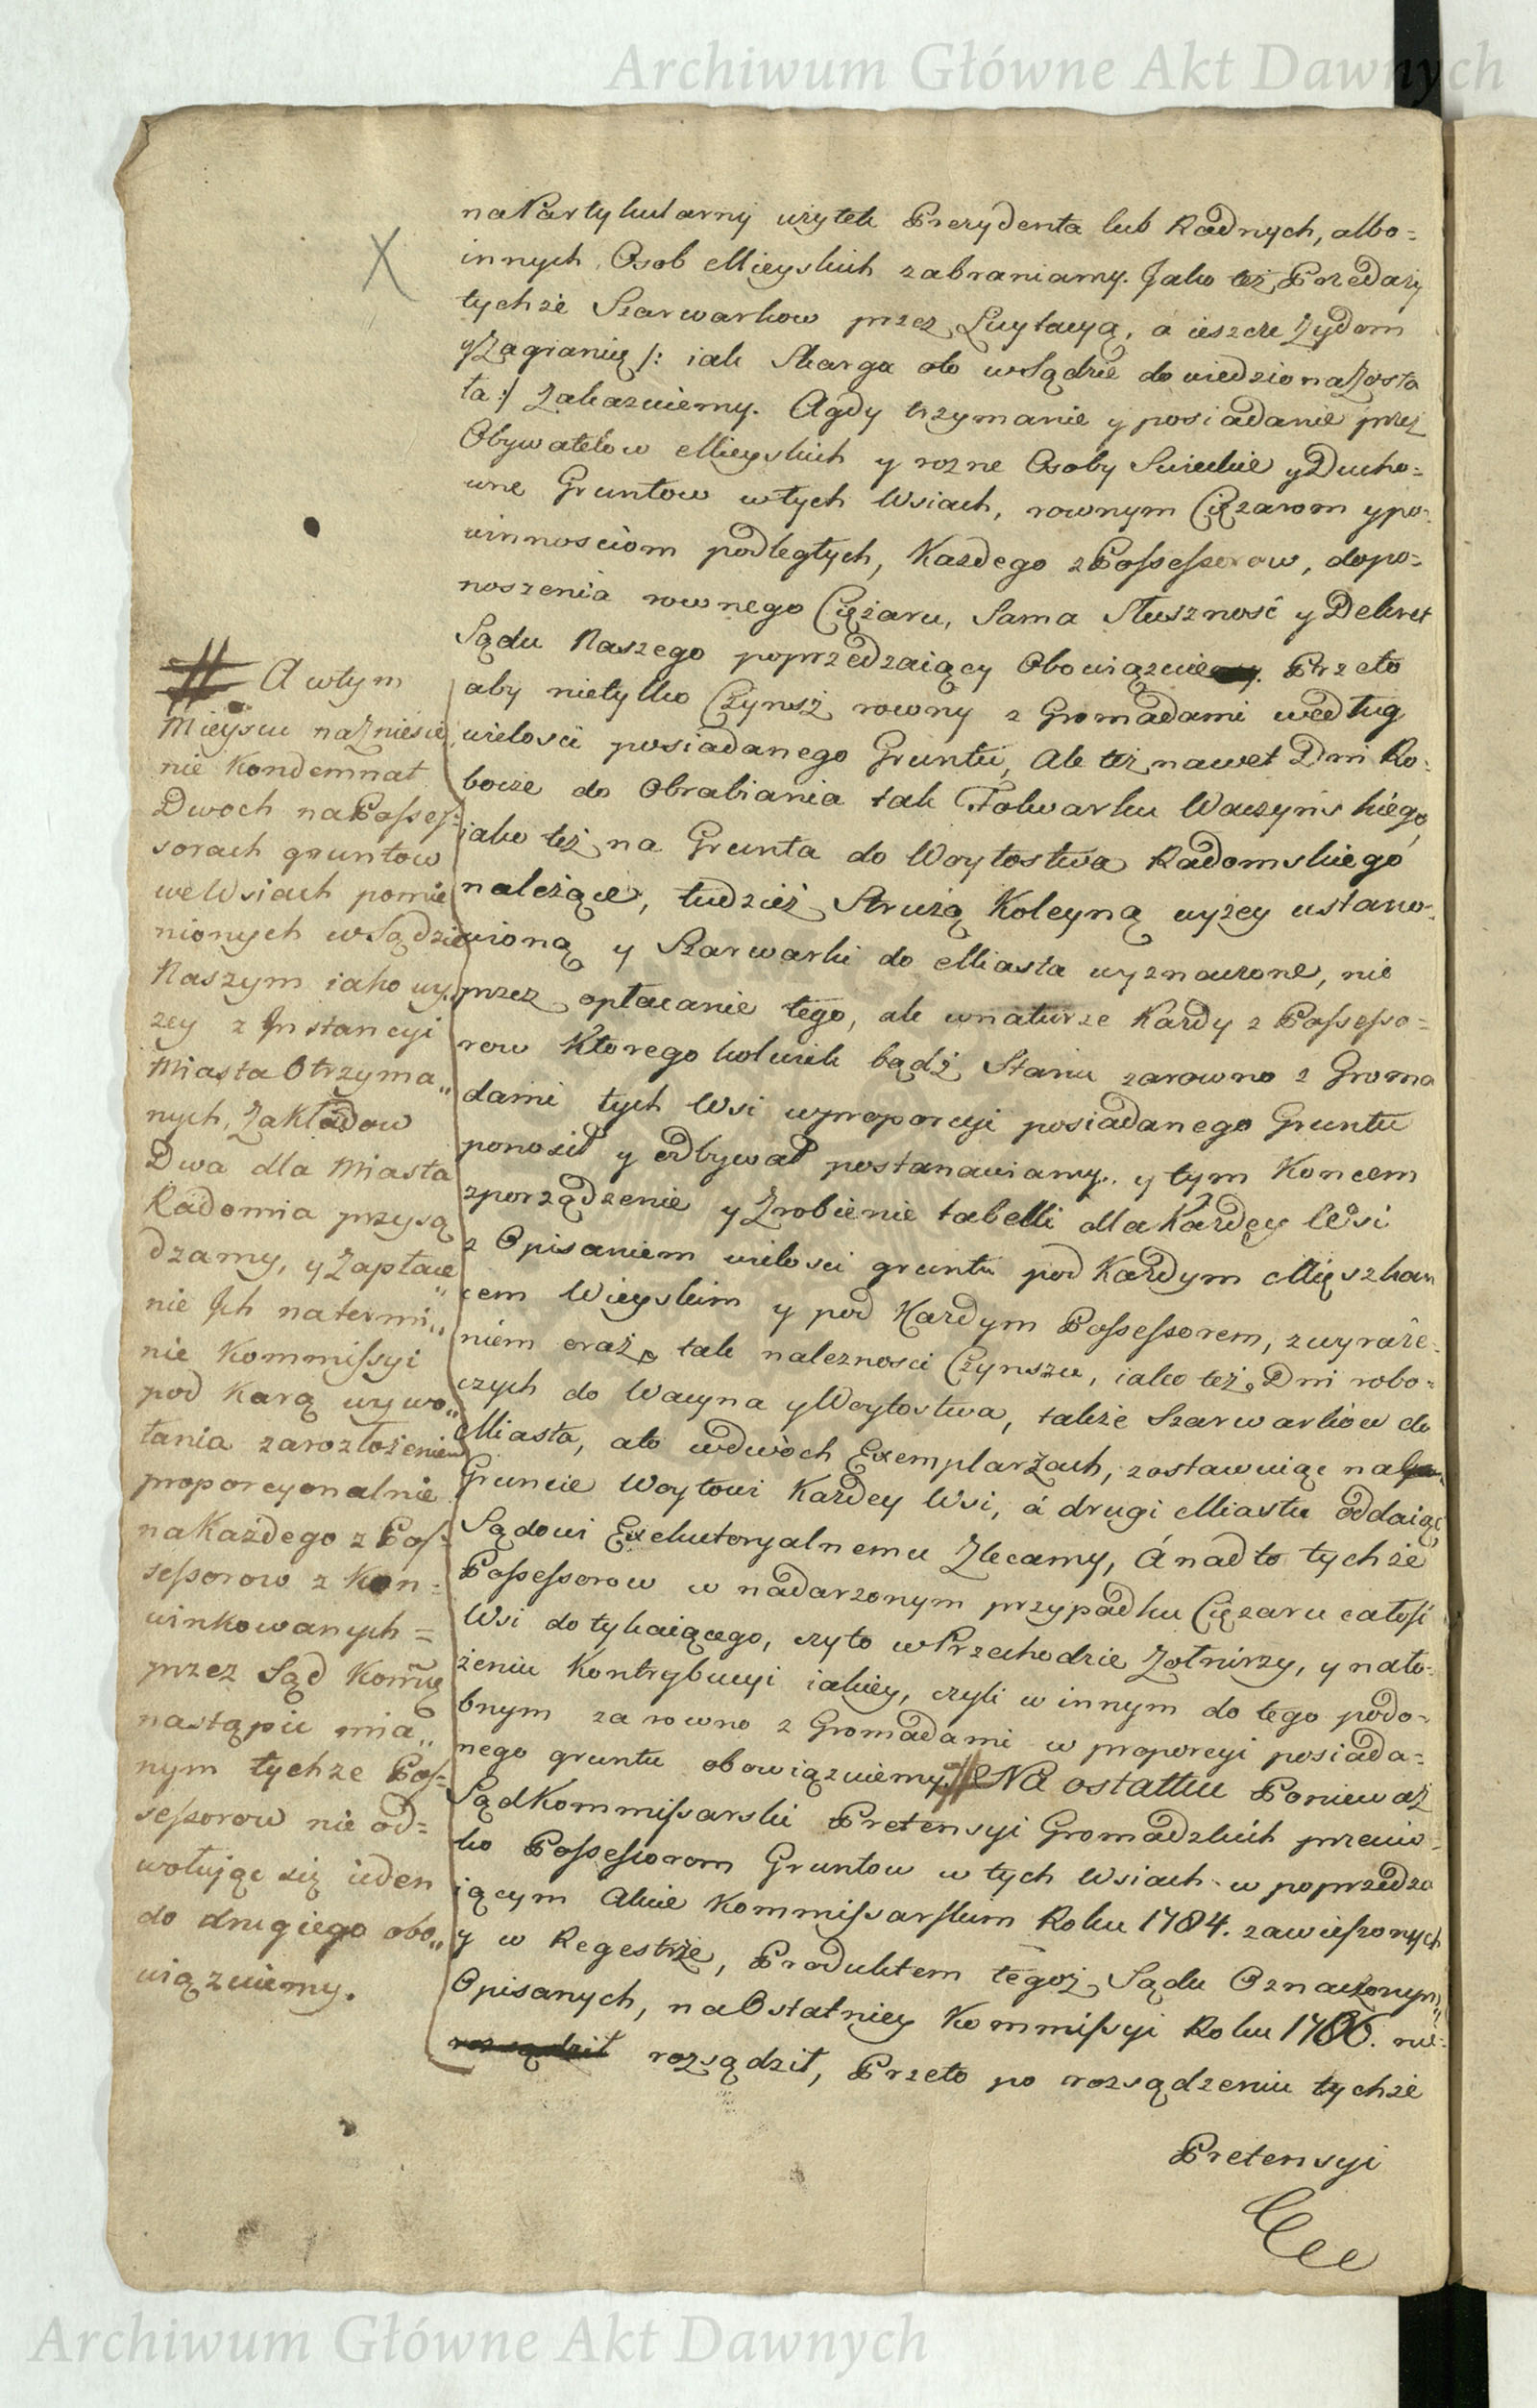 Archiwum Główne Akt Dawnych
na Partykularny użytek Prezydenta lub Radnych, albo=
innych Osob Mieyskich zabraniamy. Jako też Przedaży
tychże Szarwarkow przez Licytacyą, á ieszcze Żydom
y Zagranię /: iak Skarga oto w Sądzie dowiedziona Zosta
ła :/ Zakazuiemy. A gdy trzymanie y posiadanie przez
Obywatelow Mieyskich y rozne Osoby Swieckie y Ducho=
wne Gruntow w tych Wsiach, rownym Ciężarom y po=
winnosciom podległych, Każdego z Possessorow, do po=
noszenia rownego Ciężaru, Sama Słuszność y Dekret
Sądu Naszego poprzedzaiący Obowiązuie Przeto
aby nietylko Czynsz rowny z Gromadami według
wielosci posiadanego Gruntu, Ale też nawet Dni Ro=
bocze do Obrabiania tak Folwarku Wacyńskiego,
iako też na Grunta do Woytostwa Radomskiego
należące, tudzież Strużą Koleyną wyżey ustano=
wioną y Szarwarki do Miasta wyznaczone, nie
przez opłacanie tego, ale w naturze Każdy z Possesso=
row Ktorego kolwiek bądź Stanu zarowno z Groma
dami tych Wsi w proporcyi posiadanego Gruntu
ponosił y odbywał postanawiamy. y tym Koncem
zporządzenie y Zrobienie tabelli dla Każdey Wsi
z Opisaniem wielosci gruntu pod Każdym Mięszkan
cem Wieyskim y pod Każdym Possessorem, z wyraże=
niem oraz tak należnosci Czynszu, iako też Dni robo=
czych do Wacyna y Woytostwa, także Szarwarkow do
Miasta, a to w dwóch Exemplarzach, zostawuiąc na
Gruncie Woytowi Każdey Wsi, á drugi Miastu oddaiąc
Sądowi Exekutoryalnemu Zlecamy, Á nad to tychże
Possessorow w nadarzonym przypadku Ciężaru całości
Wsi dotykaiącego, czy to w Przechodzie Żołnirzy, y nało=
żeniu Kontrybucyi iakiey, czyli w innym do tego podo=
bnym zarowno z Gromadami w proporcyi posiada=
nego gruntu obowiązuiemy. # Na ostatku Ponieważ
Sąd Kommissarski Pretensyi Gromadzkich przeciw=
ko Possessorom Gruntow w tych Wsiach w poprzedza
iącym Akcie Kommissarskim Roku 1784. zawieszonych
y w Regestrze, Produktem tegoż Sądu Oznaczonym
Opisanych, na Ostatniey Kommissyi Roku 1786. nie=
rozsądził rozsądził, Przeto po rozsądzeniu tychże
Pretensyi
# A w tym
Mieyscu na Zniesie
nie Kondemnat
Dwoch na Posses=
sorach gruntow
we Wsiach pomie
nionych w Sądzie
Naszym iako wy
żey z Instancyi
Miasta Otrzyma„
nych, Zakładow
Dwa dla Miasta
Radomia przysą
dzamy, y Zapłace
nie Ich na termi„
nie Kommissyi
pod Karą wywo„
łania za rozłożeniem
proporcyonalnie
na Każdego z Pos=
sessorow z Kon=
winkowanych =
przez Sąd Kommę
nastąpić mia„
nym tychże Pos=
sessorow nie od=
wołując się ieden
do drugiego obo„
wiązuiemy.
Archiwum Główne Akt Dawnych